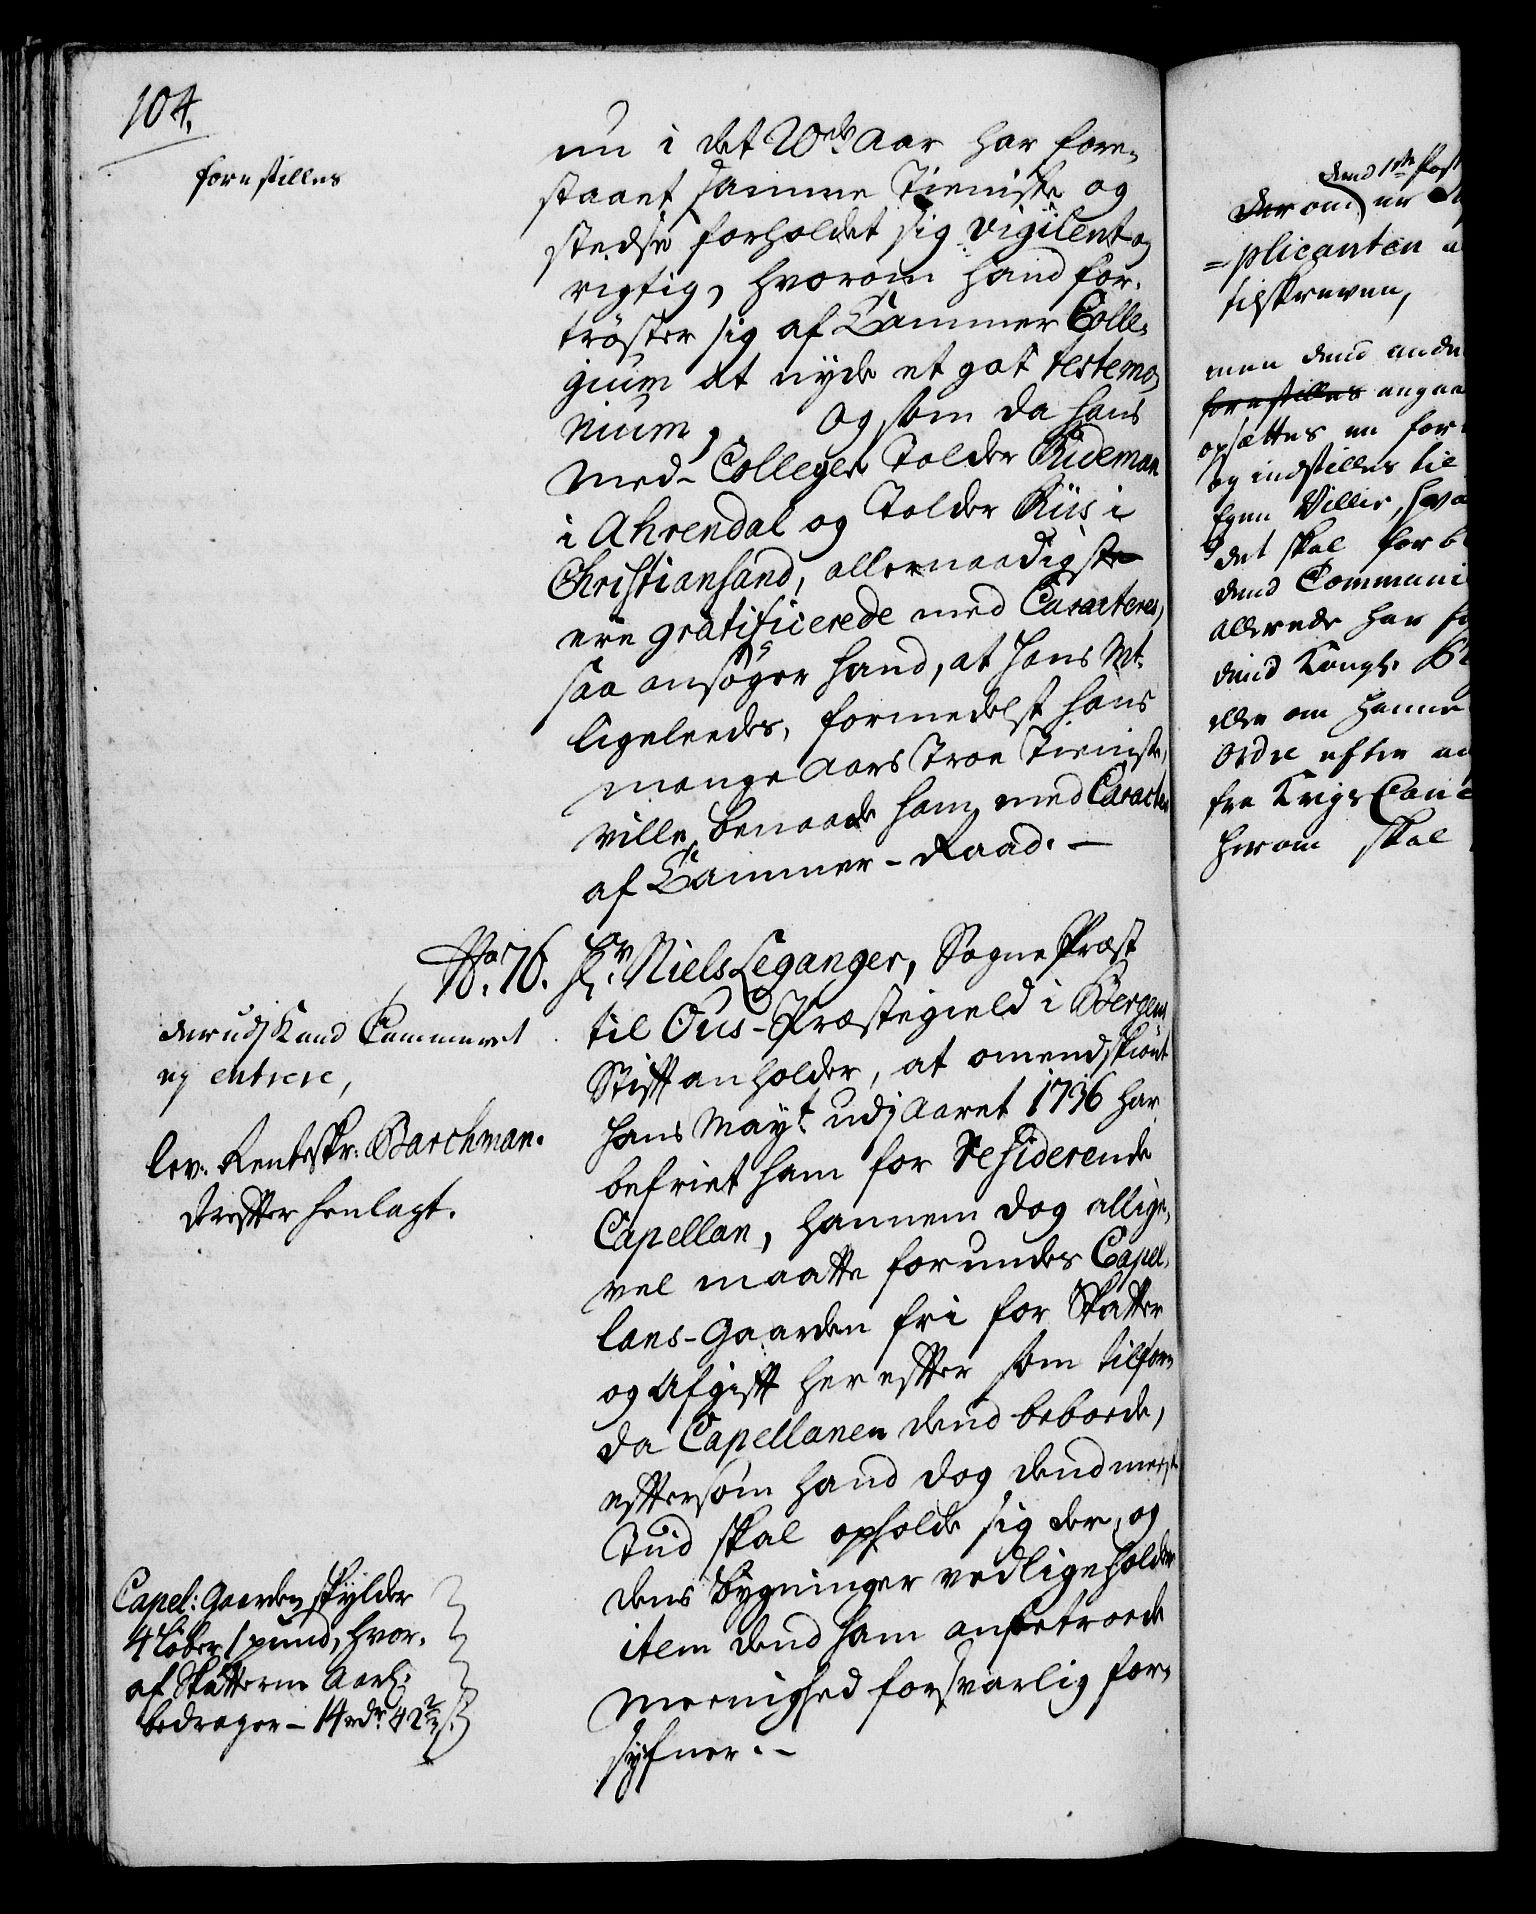 104.
forestilles
nu i det 20de Aar har fore-
staaet samme Tieniste og
stedse forholdet sig vigilent og
rigtig, hvorom hand for-
trøster sig af Cammer Colle-
gium at nyde et got testemo-
nium, og som da hans
Med-Colleger Tolder Rideman
i Ahrendal og Tolder Riis i
Christiansand, allernaadigste
ere gratificerede med Caracterer,
saa ansøger hand, at Hans Mt.
ligeleedes, formedelst hans
mange Aars Troe Tieniste,
ville benaade ham med Caracter
af Cammer-Raad. —
No. 76. Hr. Niels Leganger, Sogne Præst
til Ous-Præstegield i Bergens
Stift anholder, at omendskiønt
Hans Mayt. udj Aaret 1736 har
befriet ham for Residerende
Capellan, hannem dog allige-
vel maatte forundes Capel-
lans-Gaarden fri for Skatter
og Afgift her effter som tilforn
da Capellanen dend beboede,
efftersom hand dog dend meeste
Tiid skal opholde sig der, og
dens Bygninger vedligeholder
item dend ham anbetroede
Meenighed forsvarlig for-
syfner. —
derudj Kand Cammeret
ey entrere,
lev. Renteskr: Barchman.
dereffter henlagt.
Capel: Gaarden skylder
4 Løber 1 pund, hvor-
af Skatterne Aarl:
bedrager — 14 rdr. 42 2/3 s.
dend 1ste Post
Derom er
=plicanten
tilskreven,
men dend
forestilles
opsættes en
og indstilles til
Egen Villie,
det skal
dend
allerede har
dend Kongl.
eller om
Ordre efter
fra Krigs
herom skal